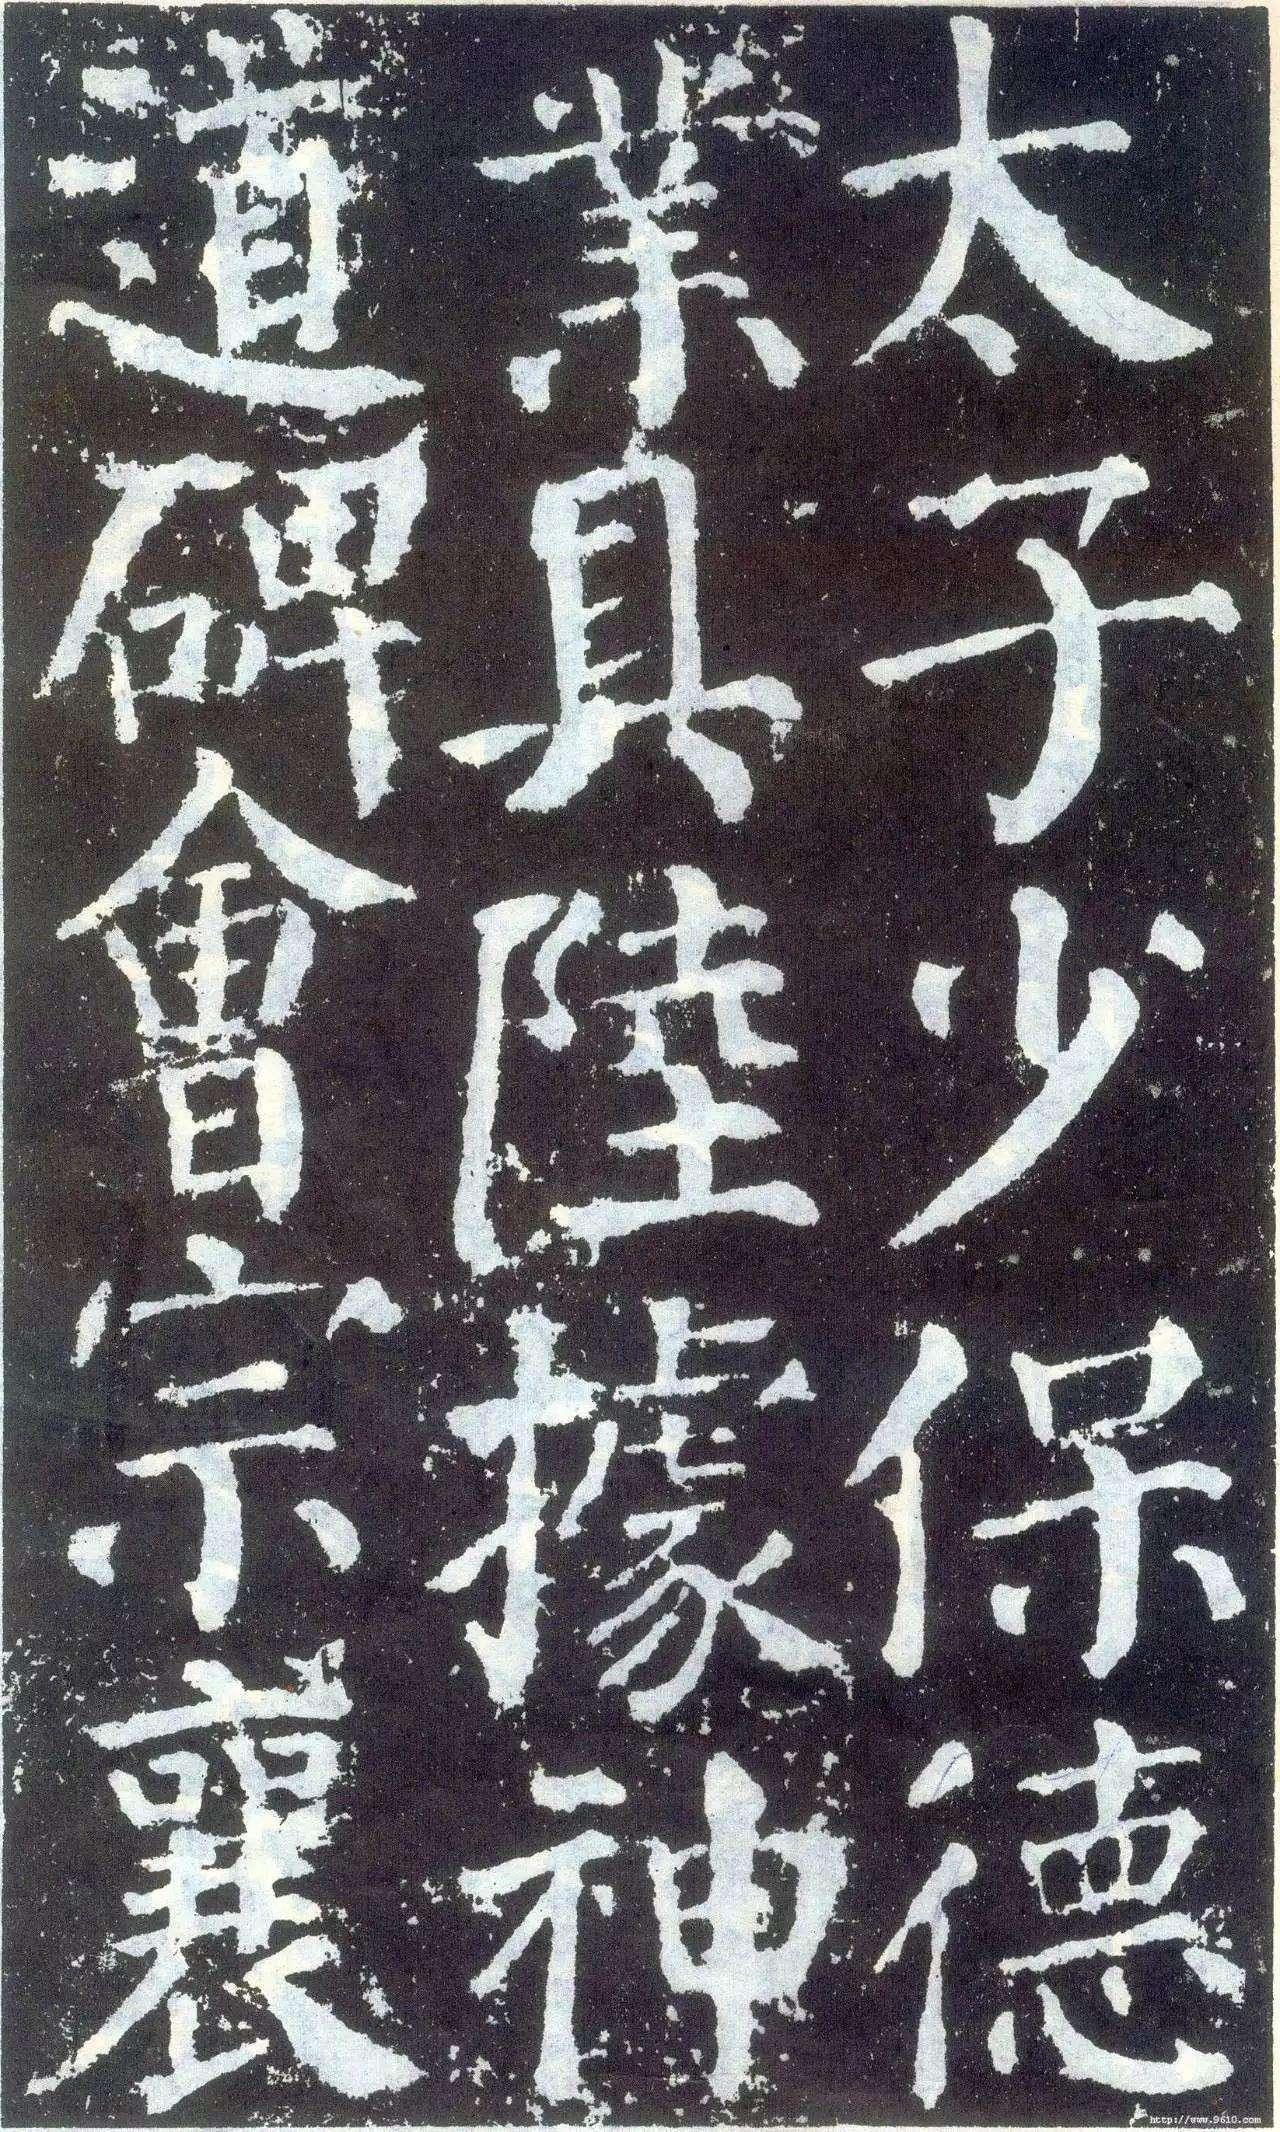 太子少保德
業具陸據神
道碑會宗襄
http://www.9610.com